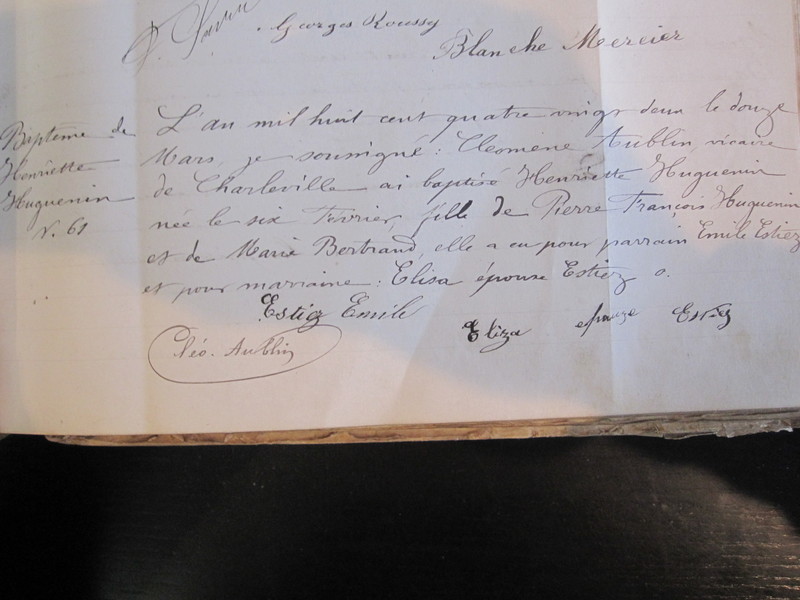 Georges Roussy
Blanche Mercier
Baptême de
Henriette
Huguenin
N. 61
L'an mil huit cent quatre vingt deux le douze
Mars, je soussigné : Cleomene Aublin, vicaire
de Charleville ai baptisé Henriette Huguenin
née le six Fevrier, fille de Pierre François Huguenin
et de Marie Bertrand, elle a eu pour parrain Emile Estiez
et pour marraine : Elisa épouse Estiez
Estiez Emile
Eliza epouze Estiez
Cléo. Aublin